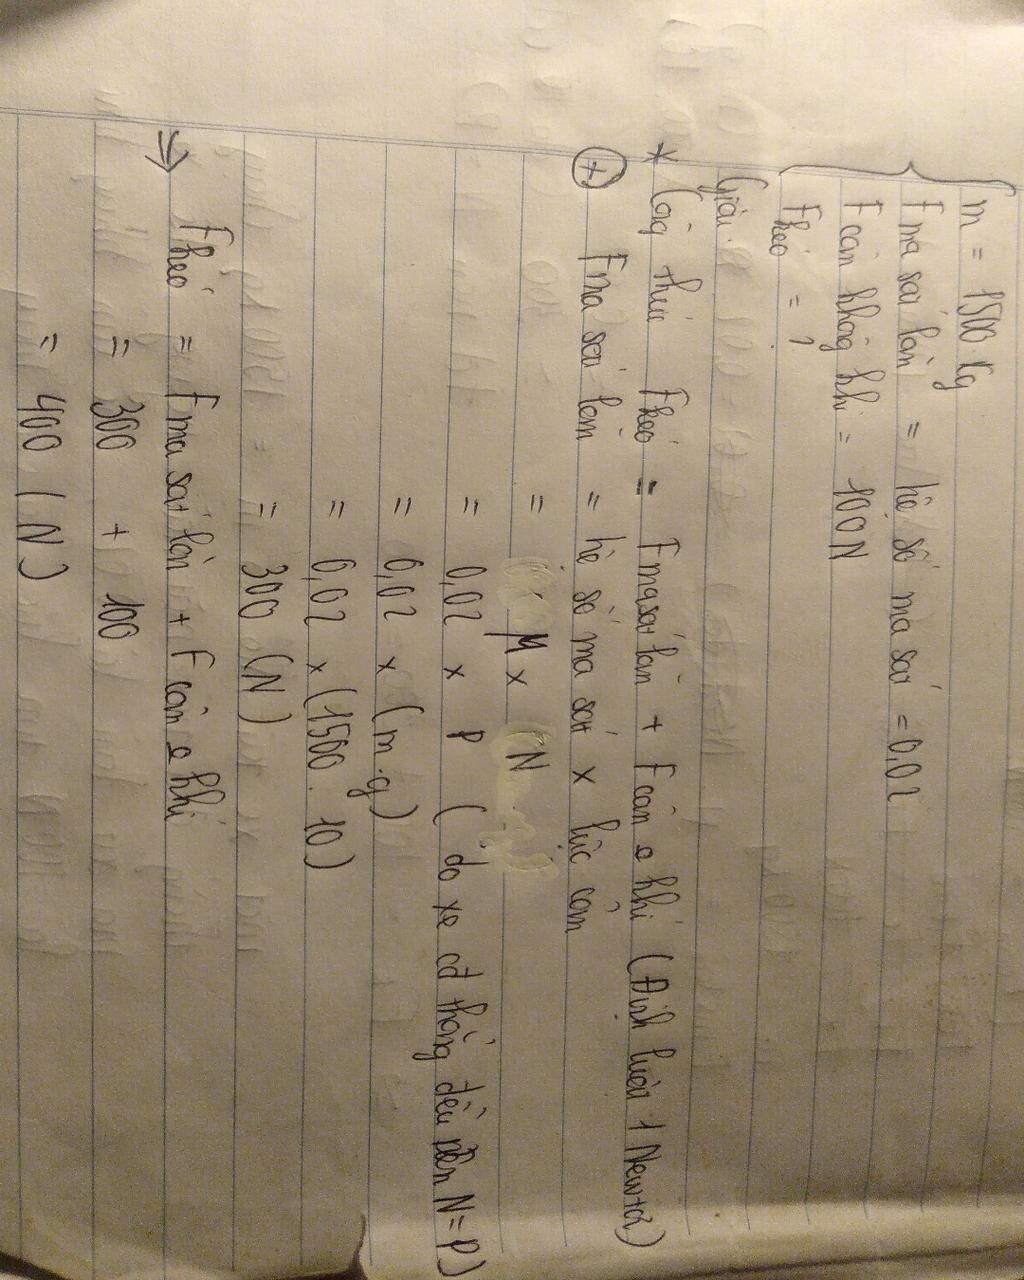 m = 1500 kg
F ma sát lăn = hệ số ma sát = 0,02
F cản không khí = 100N
F kéo = ?
Giải
* Công thức F kéo = F ma sát lăn + F cản o khí (Định luật 1 Newton)
(+) F ma sát lăn = hệ số ma sát x lực cản
= μ x N
= 0,02 x P ( do xe cđ thẳng đều nên N = P)
= 0,02 x (m.g)
= 0,02 x (1500. 10)
= 300 (N)
→ F kéo = F ma sát lăn + F cản o khí
= 300 + 100
= 400 (N)